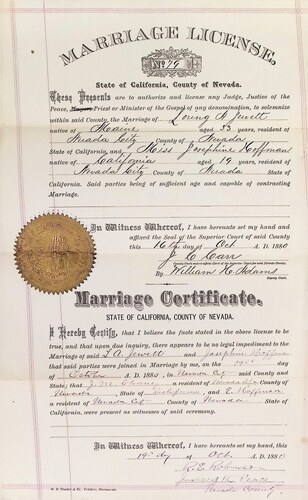 MARRIAGE LICENSE,
No 79
State of California, County of Nevada.
These Presents are to authorize and license any Judge, Justice of the
Peace, Priest or Minister of the Gospel of any denomination, to solemnize
within said County, the Marriage of Loring A Jewett
native of Maine aged 33 years, resident of
Nevada City County of Nevada
State of California, and Miss Josephine Hoffman
native of California aged 19 years, resident of
Nevada City County of Nevada
State of California. Said parties being of sufficient age and capable of contracting
Marriage.
In Witness Whereof, I have hereunto set my hand and
affixed the Seal of the Superior Court of said County
this 16th day of Oct A. D. 1880
J C Carr
By William H. Adams
Deputy Clerk.
Marriage Certificate.
STATE OF CALIFORNIA, COUNTY OF NEVADA.
I Hereby Certify, that I believe the facts stated in the above license to
be true, and that upon due inquiry, there appears to be no legal impediment to the
Marriage of said L A. Jewett and Josephine Hoffman
that said parties were joined in Marriage by me, on the 19th day of
October A. D. 1880 in Nevada City said County and
State; that J. M. a resident of Nevada City County of
Nevada, State of California, and E. Hoffman
a resident of Nevada City County of Nevada State of
were present as witnesses of said ceremony.
In Witness Whereof, I have hereunto set my hand, this
19th day of Oct A. D. 1880
Justice of the Peace
Nevada County